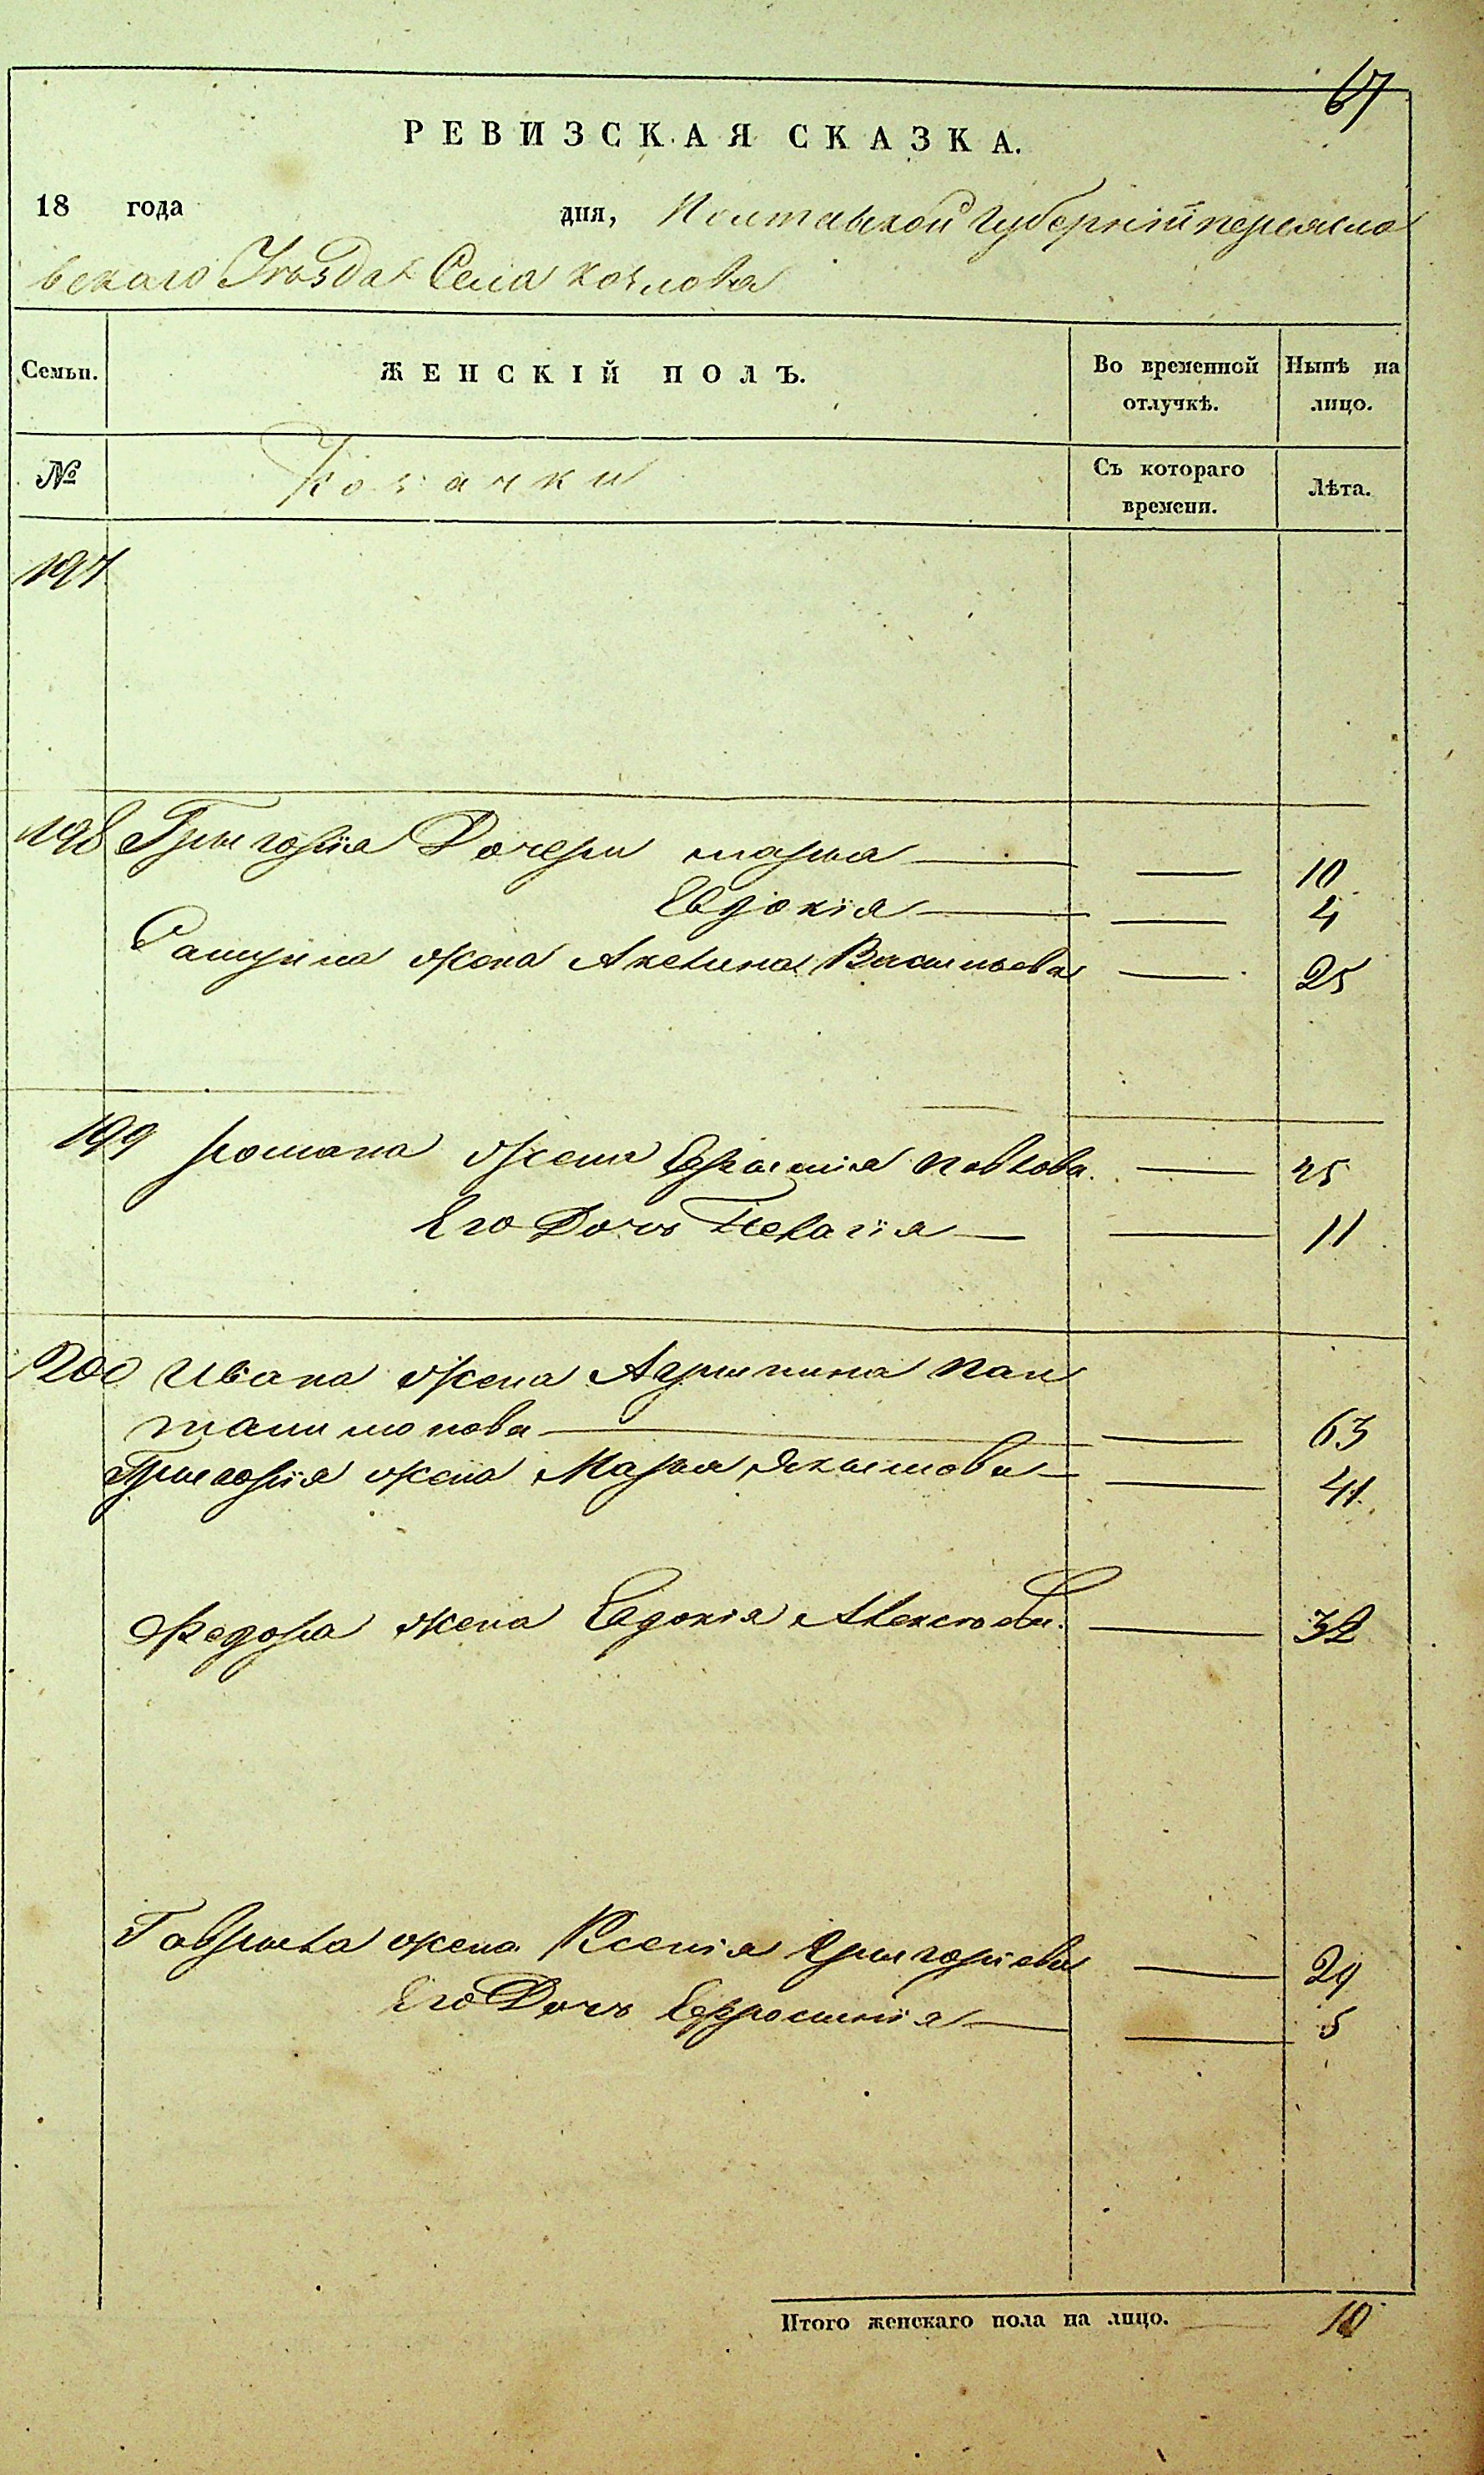 67
РЕВИЗСКАЯ СКАЗКА.
18 года дня, Полтавской Губерніи переясло
вскаго Уѣзда Села Козлова
Семьи. ЖЕНСКІЙ ПОЛЪ. Во временной отлучкѣ. Нынѣ на лицо.
№ Козачки Съ котораго времени. Лѣта.
197
198 Григорія Дочери марья 10
Евдокія 4
жена Акелина Васильева 25
199 романа жена Павлова 25
Его Дочь Пелагія 11
200 Ивана жена Агрипина Пан
талимонова 63
Григорія жена Марья Якимова 41
Федора жена Евдокія Алексѣева 32
Гаврила жена Ксенія Григоріева 29
Его Дочь Ефросинія 5
Итого женскаго пола на лицо. 10